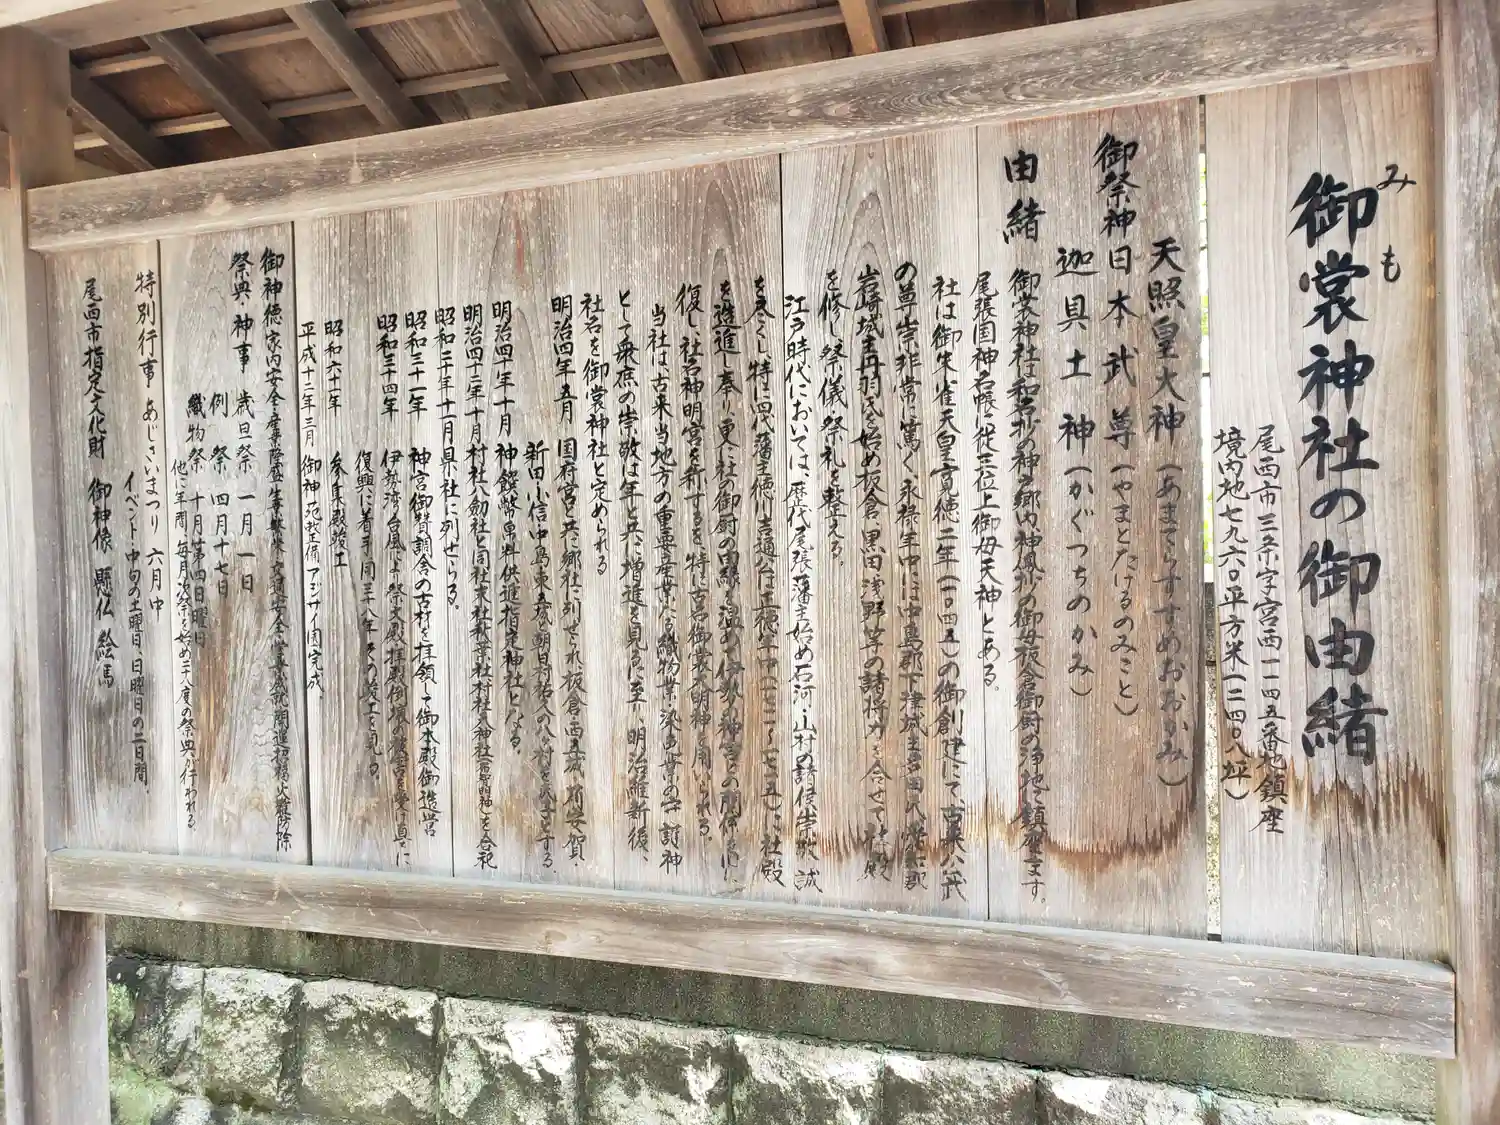 みも
御裳神社の御由緒
尾西市三条字宮西一一四五番地鎮座
境内地七九六〇平方米(二四〇八坪)
天照皇大神(あまてらすすめおおかみ)
御祭神日本武尊(やまとたけるのみこと)
迦具土神(かぐつちのかみ)
由緒
御裳神社は和名抄の神戸郷内、神鳳抄の御母板倉御厨の浄地に鎮座ます。
尾張国神名帳に従三位上御母天神とある。
社は御朱雀天皇寛徳二年(一〇四五)の御創建にて、古来八代
の尊崇非常に篤く、永禄年中には中島郡下津城主
岩崎城主丹羽氏を始め板倉、黒田、浅野等の諸将力を合せて社殿
を修し、祭儀・祭礼を整える。
江戸時代においては、歴代尾張藩主始め石河・山村の諸侯崇敬、誠
を尽くし、特に四代藩主徳川吉通公は正徳年中に社殿
を造進し奉り、更に社の御厨の由縁を温め伊勢の神宮との関係
復し、社名神明宮を称するを、特に古名御裳大明神を用いられる。
当社は、古来当地方の重要産業たる織物業・染色業の守護神
として衆庶の崇敬は年と共に増進を見るに至り、明治維新後、
社名を御裳神社と定められる
明治四年五月 国府宮と共に郷社に列せられ板倉・西五城・須安賀・
新田・小信中島・東五城・朝日・祐久の八か村を氏子とする。
明治四十年十月 神饌幣帛料供進指定神社となる。
明治四十二年十月村社八劔社と同社末社秋葉社、村社天神社を合祀
昭和二十年十一月県社に列せらる。
昭和三十一年 神宮御賛調舎の古材を拝領して御本殿御造営
昭和三十四年 伊勢湾台風により祭文殿・拝殿倒壊の被害を受け直ちに
復興に着手、同三十八年その竣工を見る。
昭和六十一年 参集殿竣工
平成十二年三月 御神苑整備アジサイ園完成
御神徳家内安全・産業隆盛・生業繁栄・交通安全・学業成就・開運招福・火難防除
祭典・神事 歳旦祭 一月一日
例祭 四月十七日
織物祭 十月第四日曜日
他に年間、毎月次祭を始め二十八度の祭典が行われる。
特別行事 あじさいまつり 六月中
イベント・中旬の土曜日、日曜日の二日間。
尾西市指定文化財 御神像 懸仏 絵馬